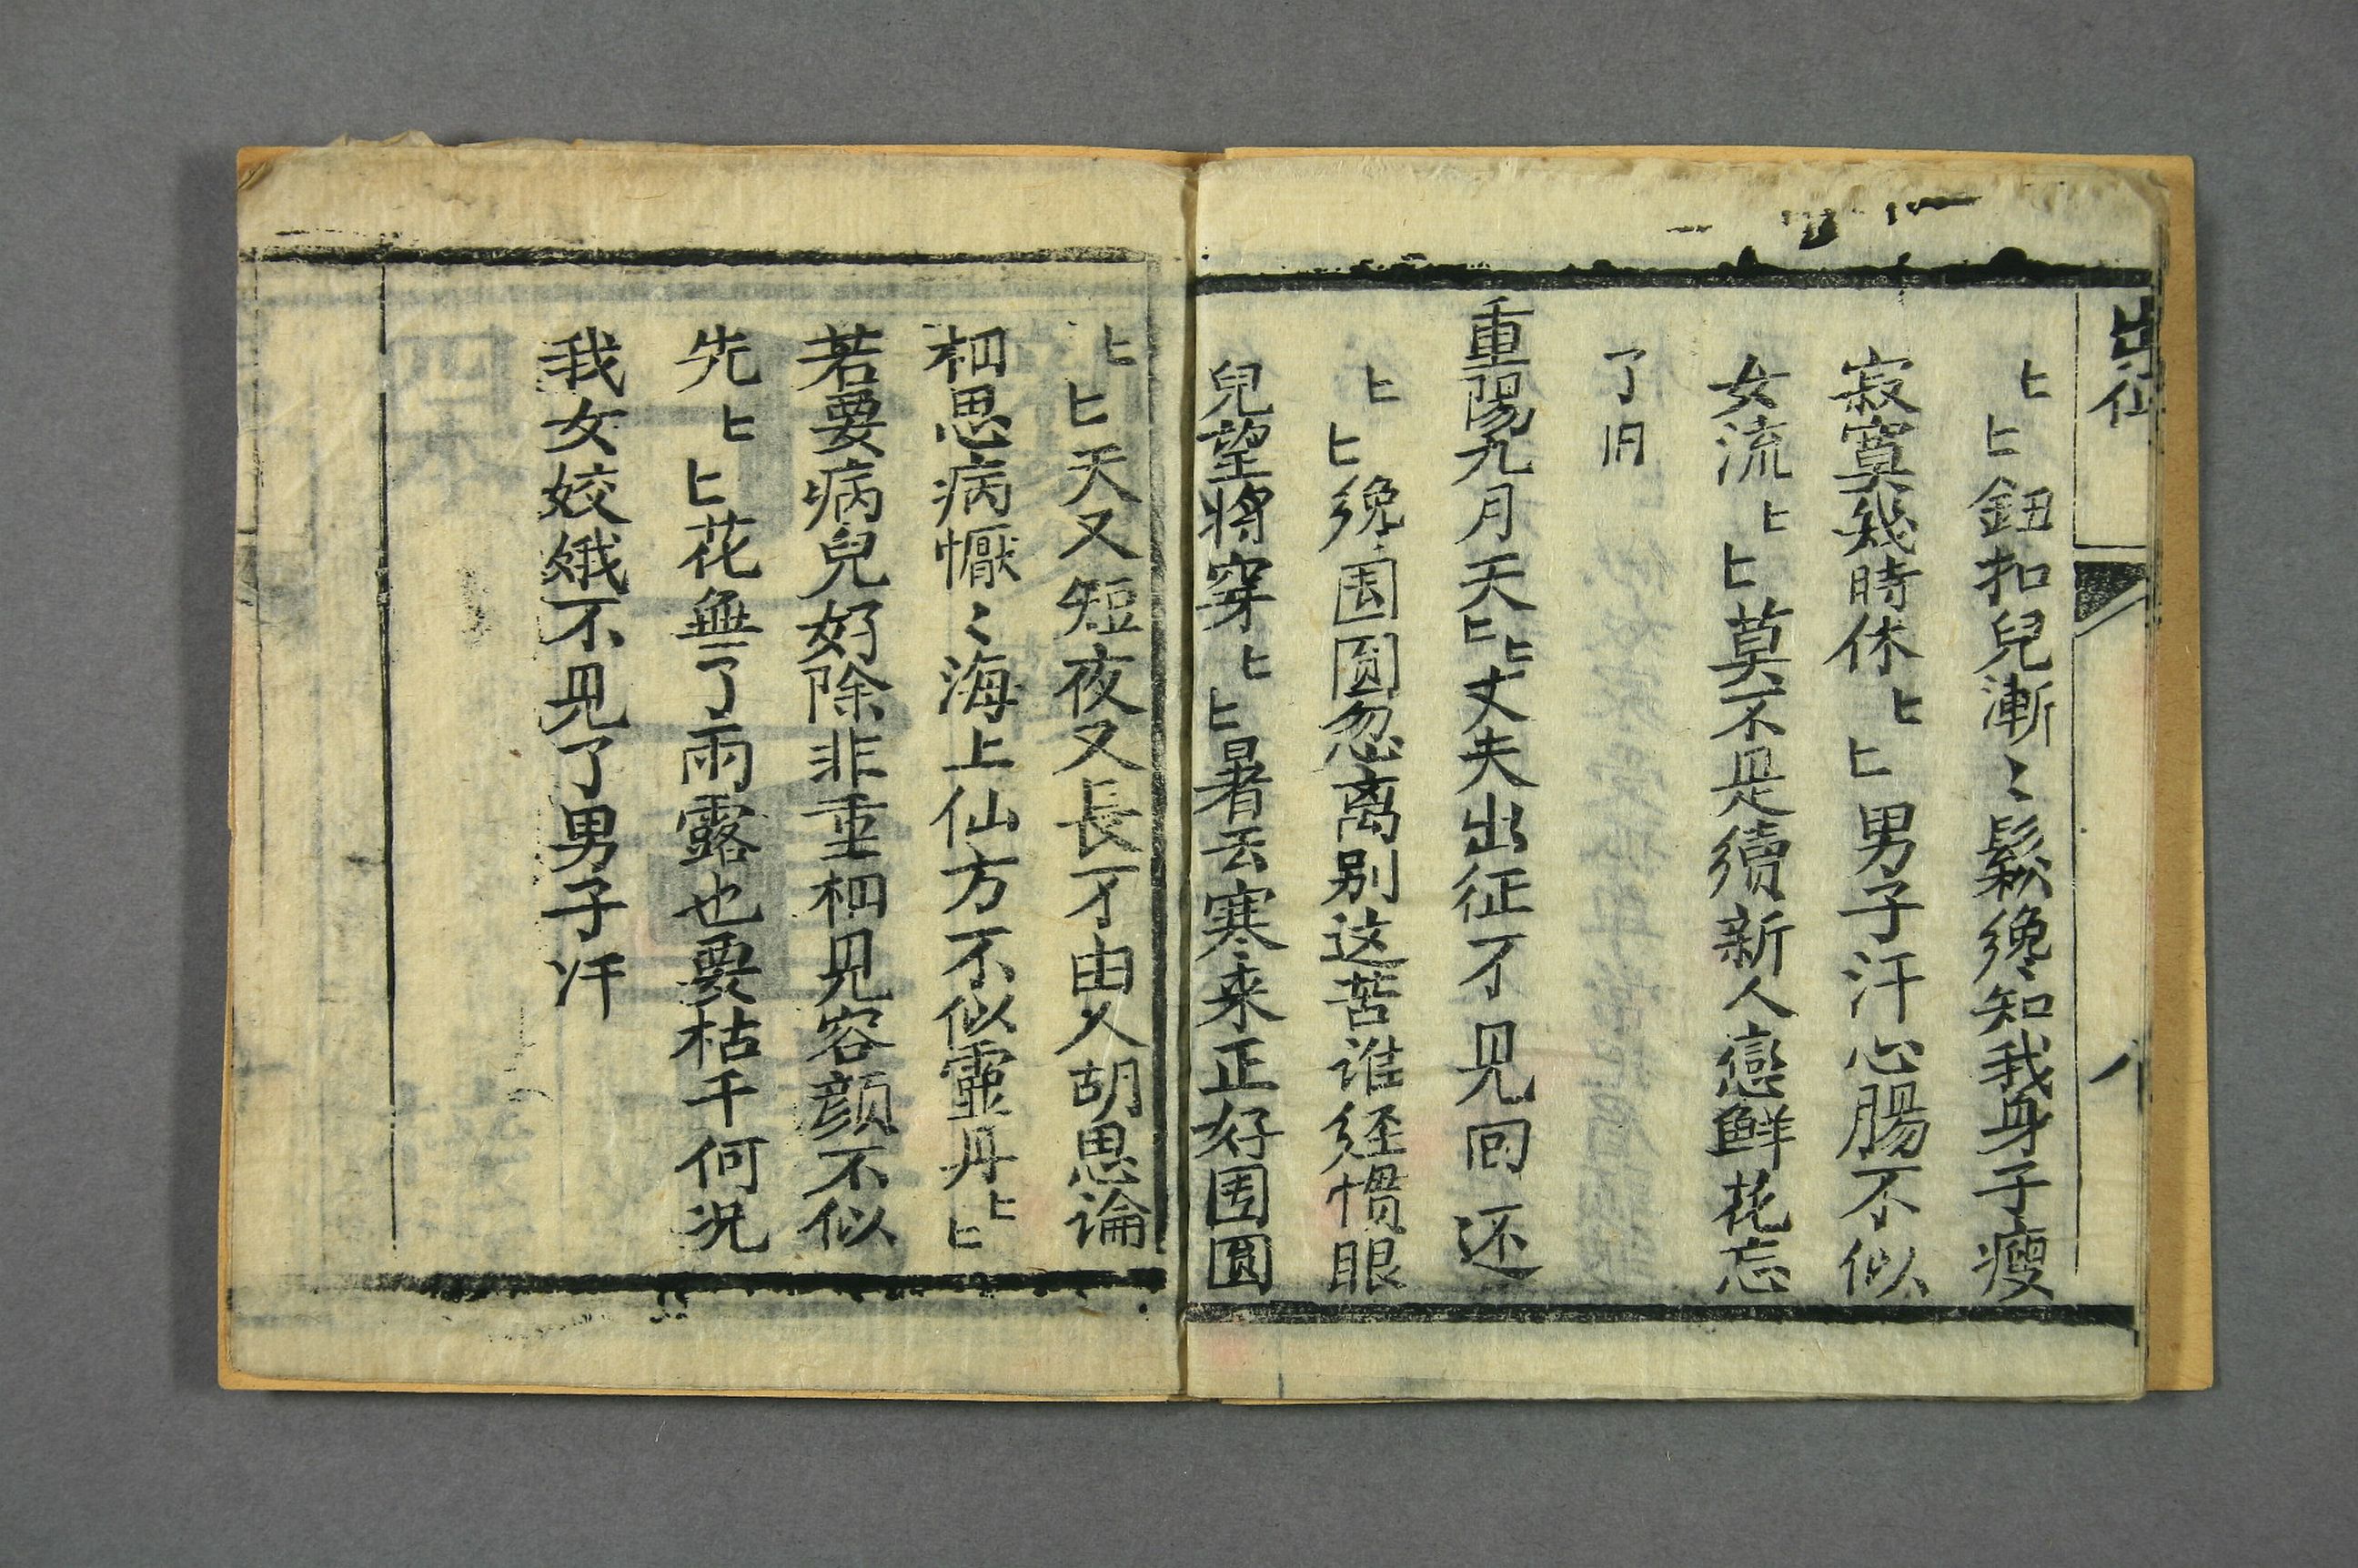 出征
八
匕匕鈕扣兒漸〻鬆纔知我身子瘦
寂寞幾時休匕匕男子汗心腸不似
女流匕匕莫不是續新人戀鮮花忘
了旧
重陽九月天匕匕丈夫出征不見回还
匕匕纔囲圓忽离别这苦谁经惯眼
兒望將穿匕匕暑去寒来正好囲圓
匕匕天又短夜又長不由人胡思論
相思病懨〻海上仙方不似靈丹匕匕
若要病兒好除非重相見容顔不似
先匕匕花無了雨露也要枯干何况
我女姣娥不見了男子汗